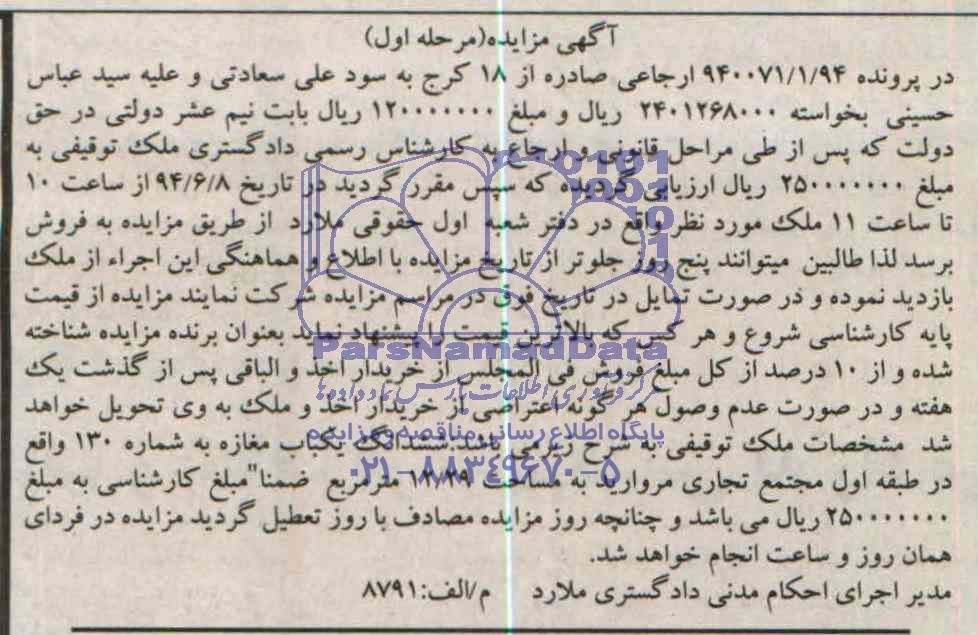 آگهی مزایده(مرحله اول)
در پرونده ۹۴۰۰۷۱/۱/۹۴ ارجاعی صادره از ۱۸ کرج به سود علی سعادتی و علیه سید عباس
حسینی بخواسته ۲۴۰۱۲۶۸۰۰۰ ریال و مبلغ ۱۲۰۰۰۰۰۰۰ ریال بابت نیم عشر دولتی در حق
دولت که پس از طی مراحل قانونی و ارجاع به کارشناس رسمی دادگستری ملک توقیفی به
مبلغ ۲۵۰۰۰۰۰۰۰۰ ریال ارزیابی گردیده که سپس مقرر گردید در تاریخ ۹۴/۶/۸ از ساعت ۱۰
تا ساعت ۱۱ ملک مورد نظر واقع در دفتر شعبه اول حقوقی ملارد از طریق مزایده به فروش
برسد لذا طالبین میتوانند پنج روز جلوتر از تاریخ مزایده با اطلاع و هماهنگی این اجراء از ملک
بازدید نموده و در صورت تمایل در تاریخ فوق در مراسم مزایده شرکت نمایند مزایده از قیمت
پایه کارشناسی شروع و هر کس که بالاترین قیمت را پیشنهاد نماید بعنوان برنده مزایده شناخته
ParsNamadData
شده و از ۱۰ درصد از کل مبلغ فروش فی المجلس از خریدار اخذ و الباقی پس از گذشت یک
مرکز فرآوری اطلاعات پارس نماد داده‌ها
هفته و در صورت عدم وصول هر گونه اعتراضی از خریدار اخذ و ملک به وی تحویل خواهد
پایگاه اطلاع رسانی مناقصه و مزایده
شد مشخصات ملک توقیفی به شرح زیر می باشد:ششدانگ یکباب مغازه به شماره ۱۳۰ واقع
۰۲۱-۸۸۳۴۹۶۷۰-۵
در طبقه اول مجتمع تجاری مروارید به مساحت مترمربع ضمنا"مبلغ کارشناسی به مبلغ
۲۵۰۰۰۰۰۰۰۰ ریال می باشد و چنانچه روز مزایده مصادف با روز تعطیل گردید مزایده در فردای
همان روز و ساعت انجام خواهد شد.
مدیر اجرای احکام مدنی دادگستری ملارد م/الف:۸۷۹۱